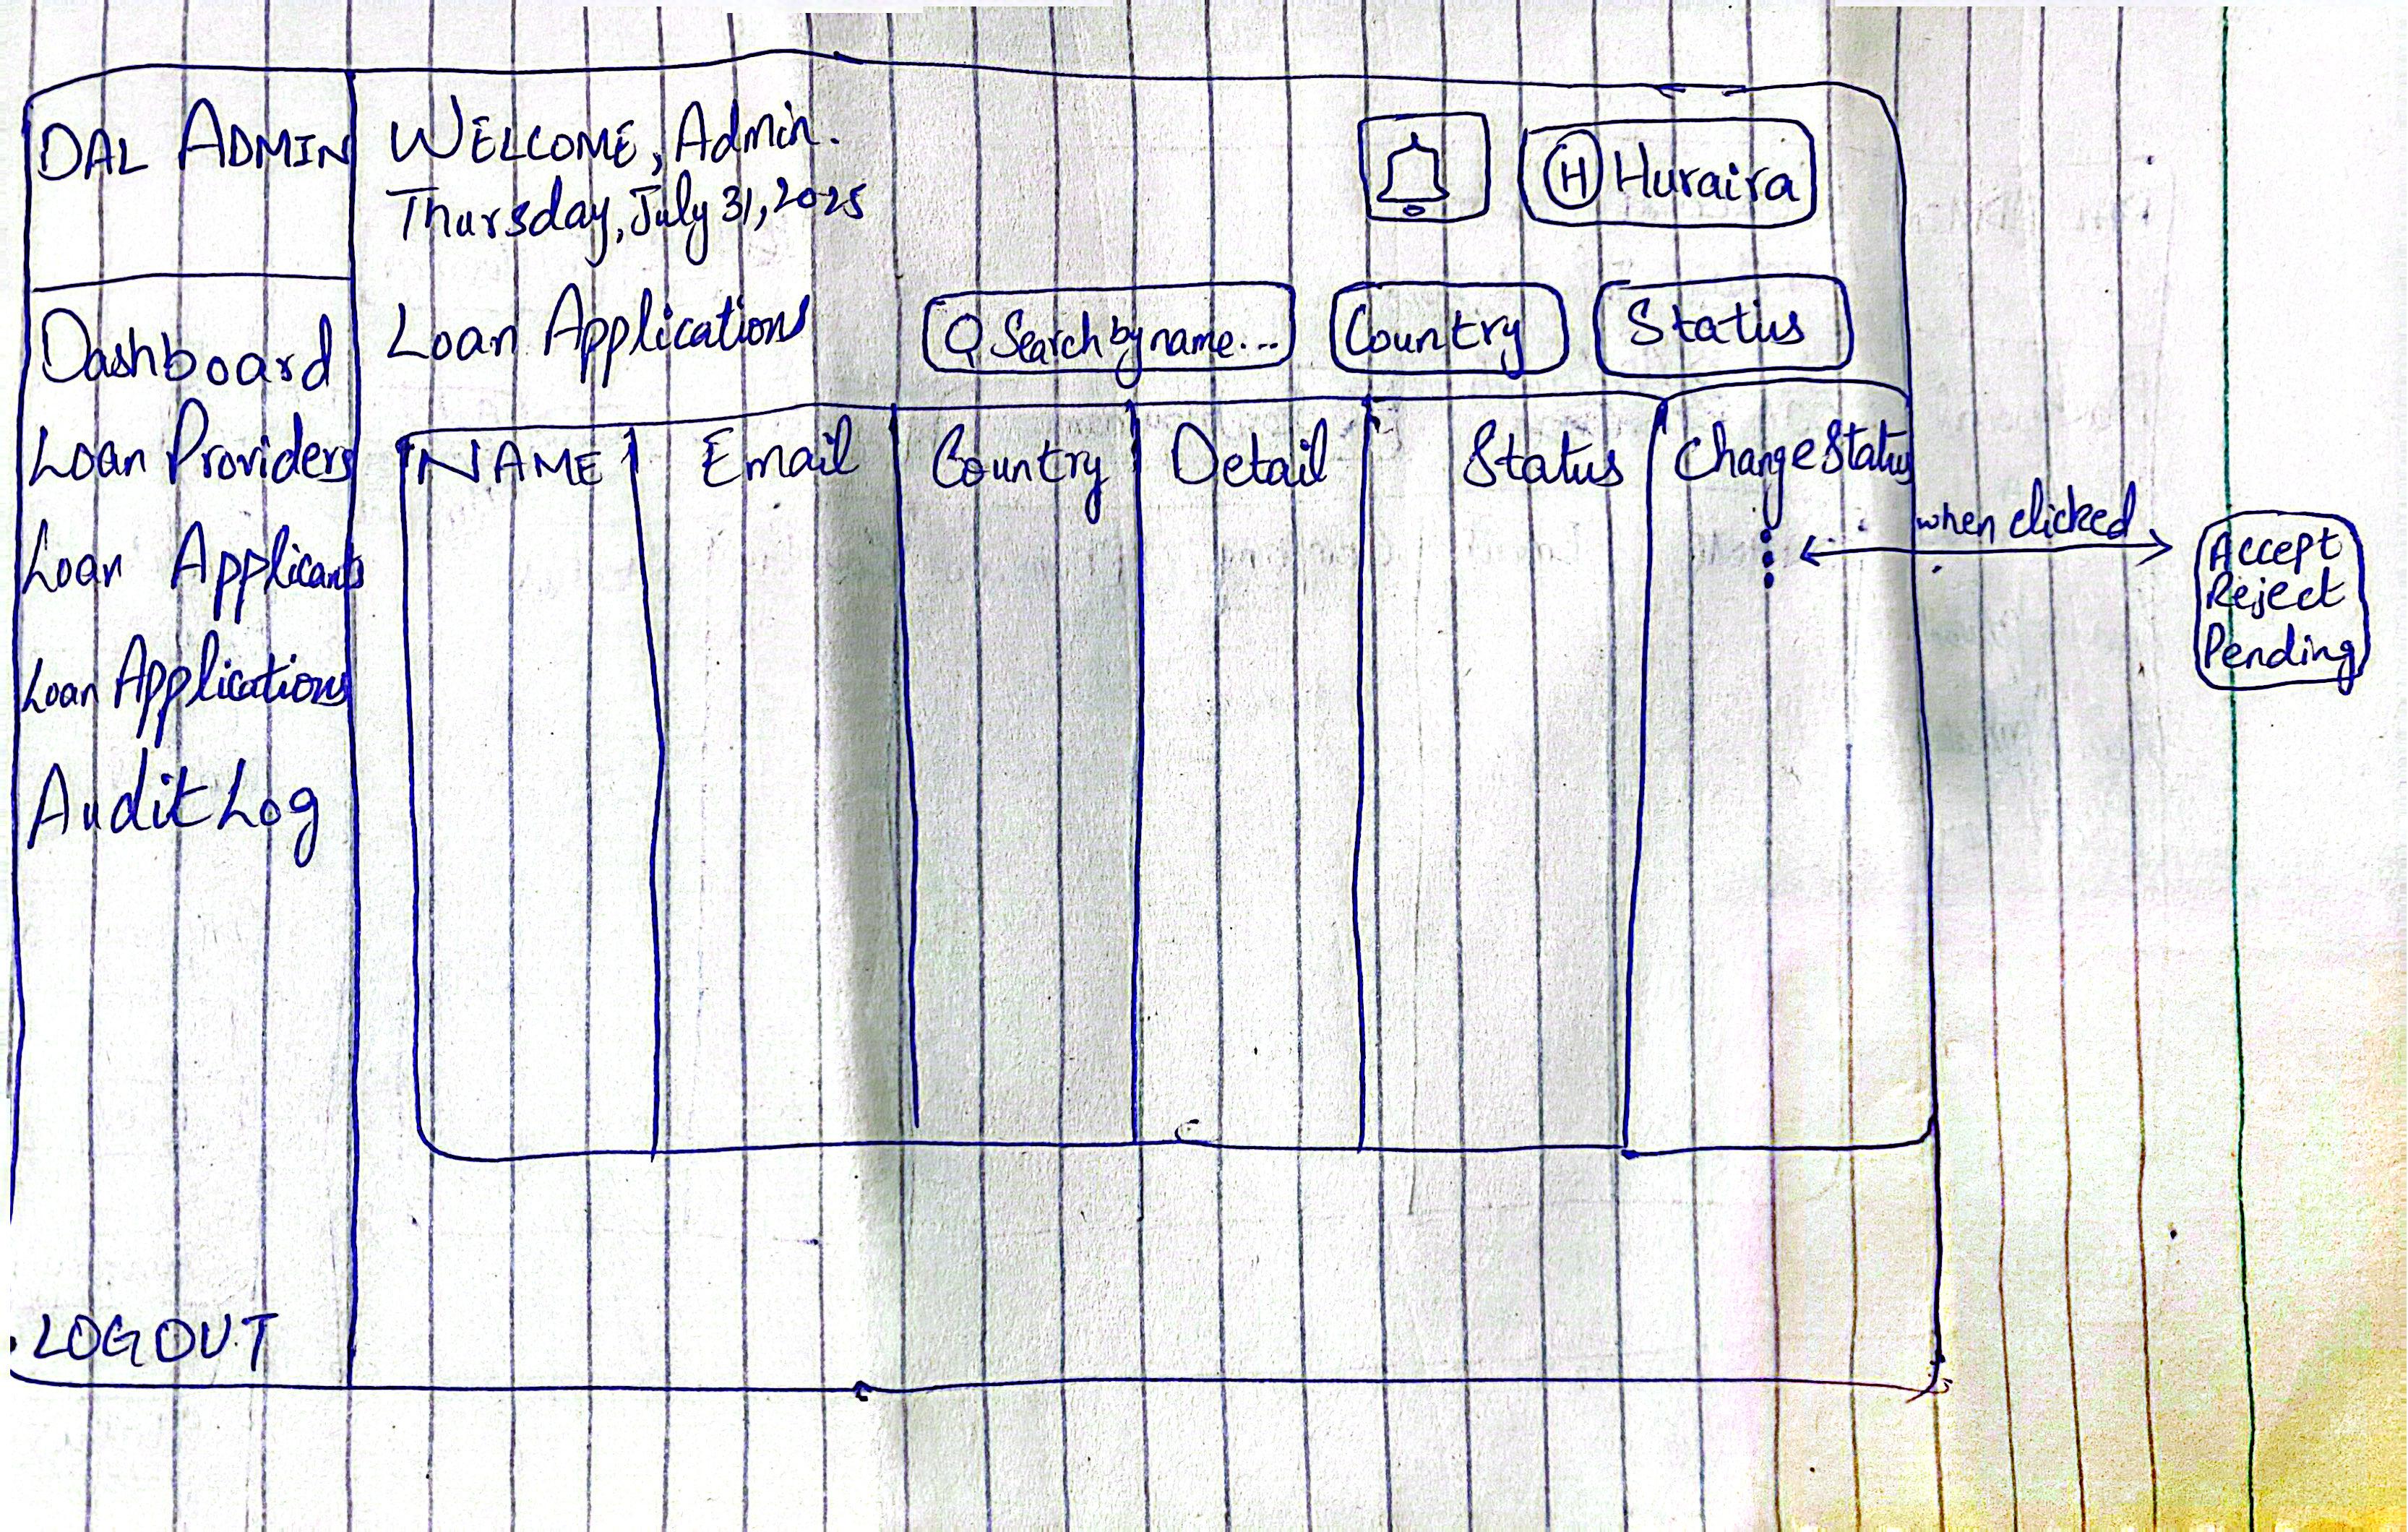 DAL ADMIN
Dashboard
Loan Providers
Loan Applicants
Loan Applications
Audit Log
LOGOUT
WELCOME, Admin.
Thursday, July 31, 2025
H Huraira
Loan Applications
Search by name...
Country
Status
NAME
Email
Country
Detail
Status
Change Status
when clicked
Accept
Reject
Pending